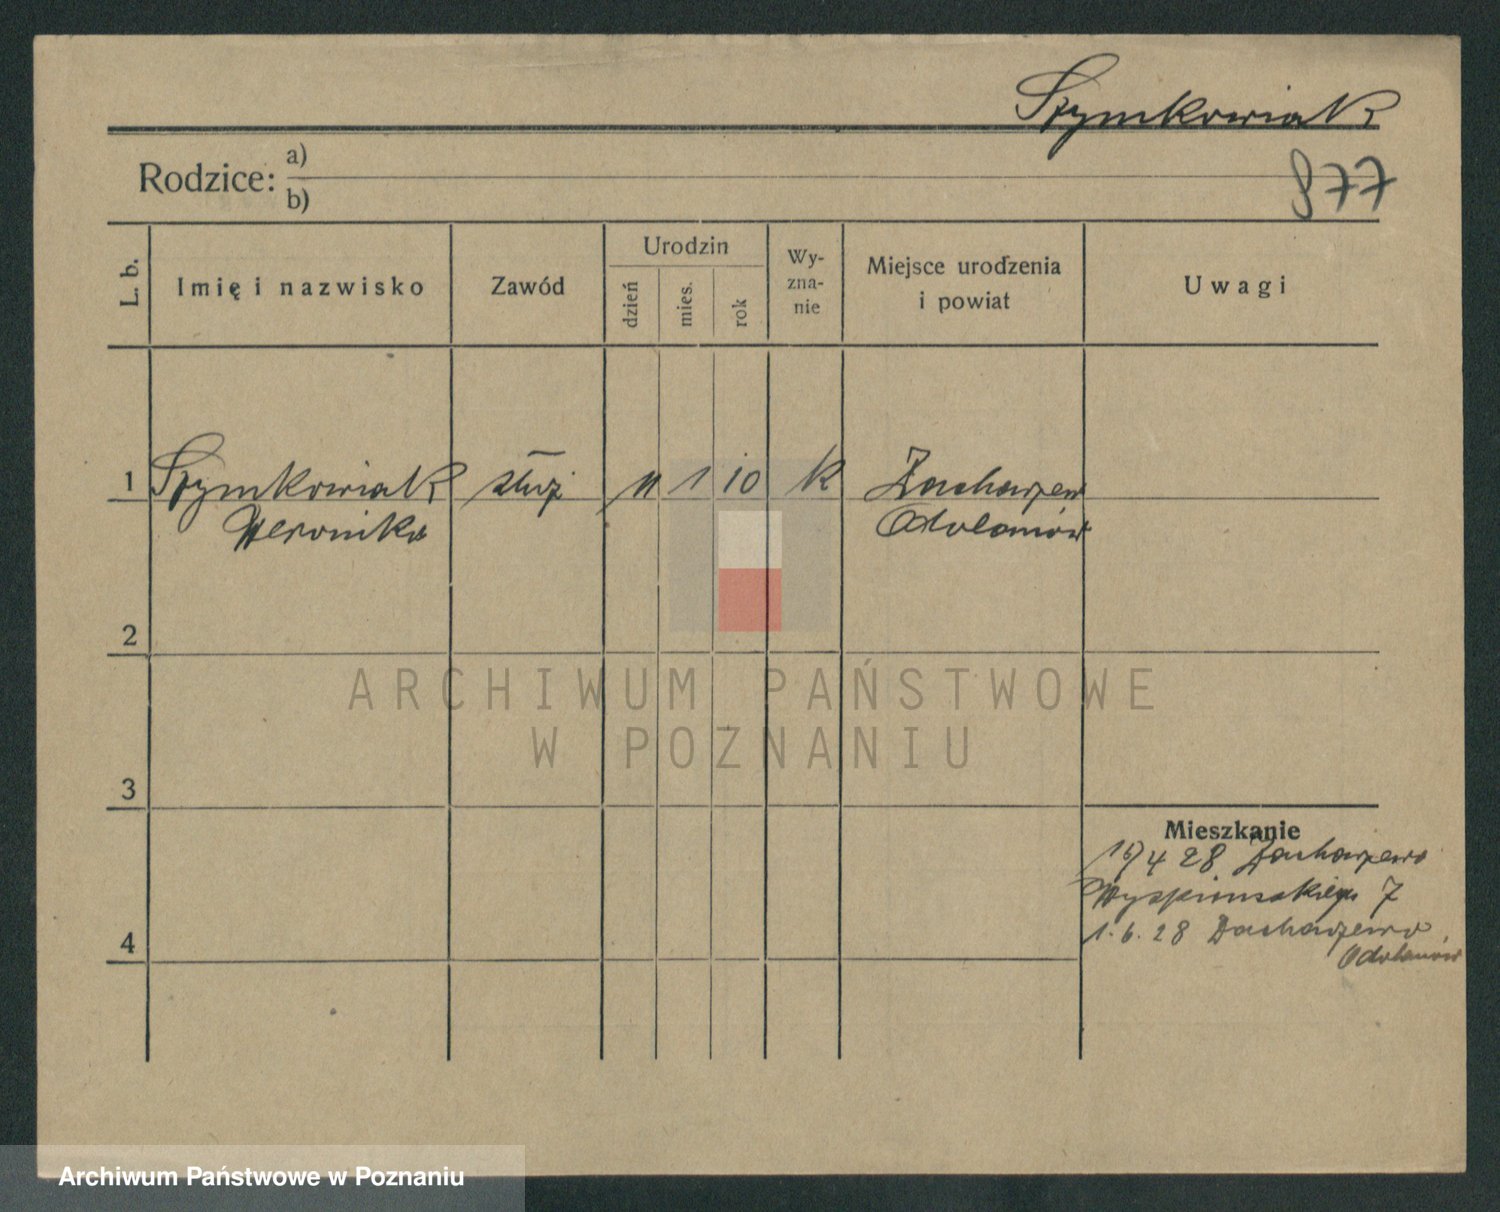 Szymkowiak
Rodzice: a)
b)
877
L. b.
Imię i nazwisko
Zawód
Urodzin
dzień
mies.
rok
Wy-
zna-
nie
Miejsce urodzenia
i powiat
Uwagi
1 Szymkowiak służ 11 1 10 k Zacharzew
Weronika Odolanów
2
3
4
Mieszkanie
4 28 Zacharzewo
Wyspiańskiego 7
1. 6. 28 Zacharzewo
Odolanów
ARCHIWUM PAŃSTWOWE
W POZNANIU
Archiwum Państwowe w Poznaniu